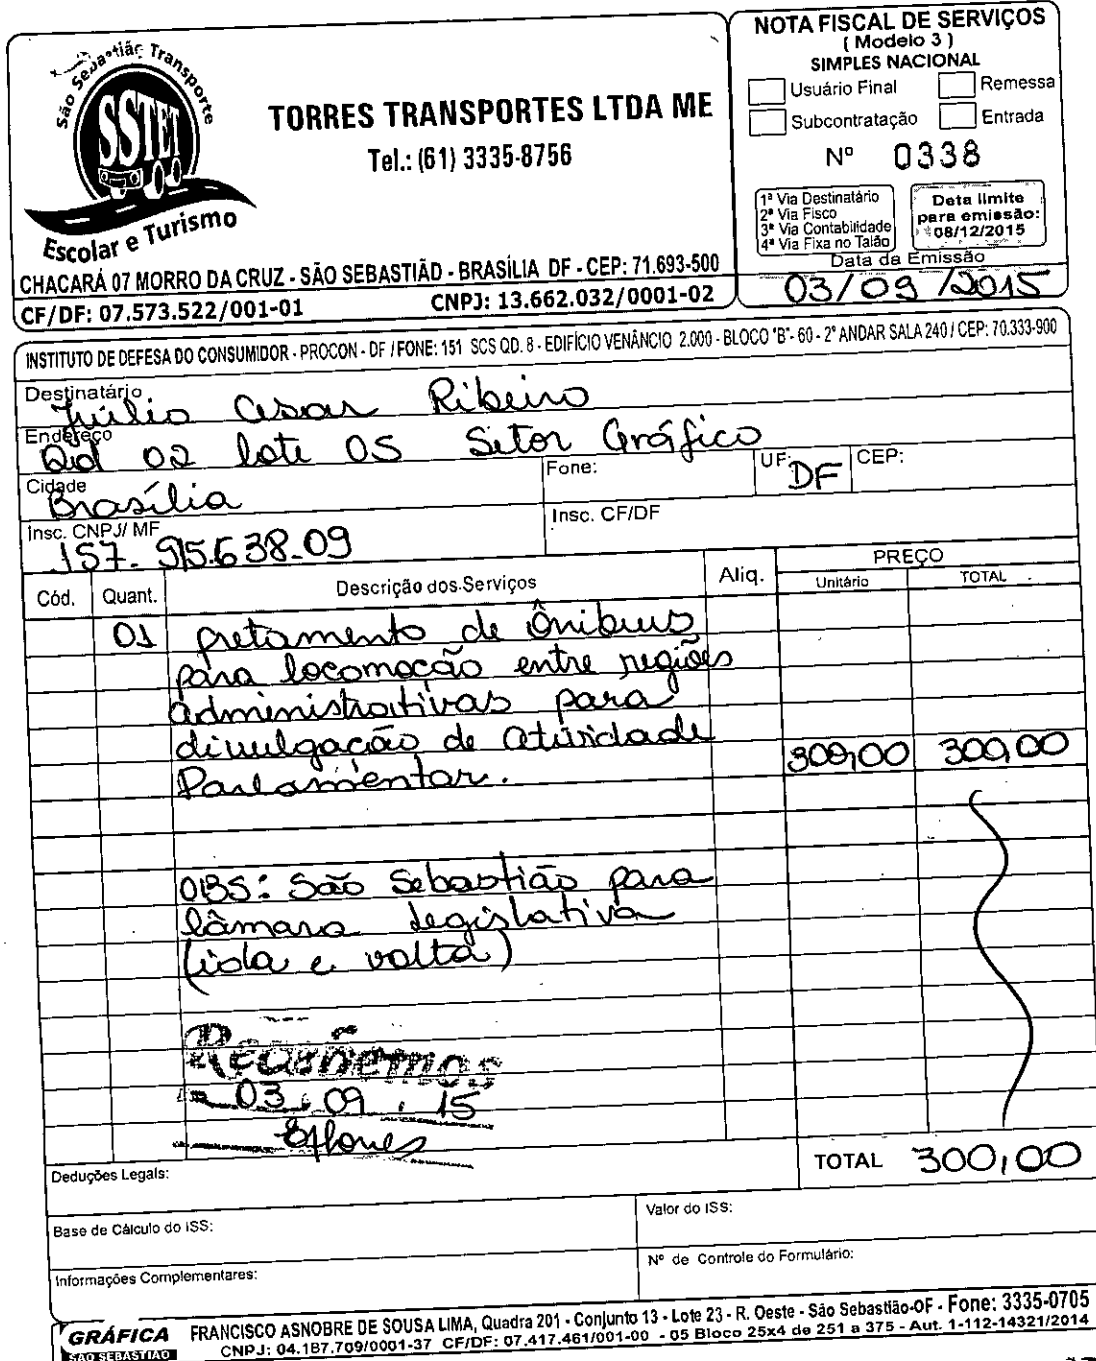 São Sebastião Transporte
SSTET
Escolar e Turismo
TORRES TRANSPORTES LTDA ME
Tel.: (61) 3335-8756
CHACARÁ 07 MORRO DA CRUZ - SÃO SEBASTIÃO - BRASÍLIA DF - CEP: 71.693-500
CF/DF: 07.573.522/001-01 CNPJ: 13.662.032/0001-02
NOTA FISCAL DE SERVIÇOS
( Modelo 3 )
SIMPLES NACIONAL
Usuário Final Remessa
Subcontratação Entrada
Nº 0338
1ª Via Destinatário
2ª Via Fisco
3ª Via Contabilidade
4ª Via Fixa no Talão
Data limite
para emissão:
08/12/2015
Data da Emissão
03/09/2015
INSTITUTO DE DEFESA DO CONSUMIDOR - PROCON - DF / FONE: 151 SCS QD. 8 - EDIFÍCIO VENÂNCIO 2.000 - BLOCO "B"- 60 - 2º ANDAR SALA 240 / CEP: 70.333-900
Destinatário Júlio Cesar Ribeiro
Endereço Qd 02 lote 05 Setor Gráfico
Cidade Brasília Fone: UF: DF CEP:
Insc. CNPJ/ MF 157.915.638-09 Insc. CF/DF
Cód. Quant. Descrição dos Serviços Aliq. PREÇO
Unitário TOTAL
01 fretamento de Ônibus
para locomoção entre regiões
administrativas para
divulgação de atividade
Parlamentar. 300,00 300,00
OBS: São Sebastião para
Câmara Legislativa
(ida e volta)
Recebemos
03 / 09 / 15
TOTAL 300,00
Deduções Legais:
Base de Cálculo do ISS: Valor do ISS:
Informações Complementares: Nº de Controle do Formulário:
GRÁFICA
SÃO SEBASTIÃO
FRANCISCO ASNOBRE DE SOUSA LIMA, Quadra 201 - Conjunto 13 - Lote 23 - R. Oeste - São Sebastião-DF - Fone: 3335-0705
CNPJ: 04.187.709/0001-37 CF/DF: 07.417.461/001-00 - 05 Bloco 25x4 de 251 a 375 - Aut. 1-112-14321/2014